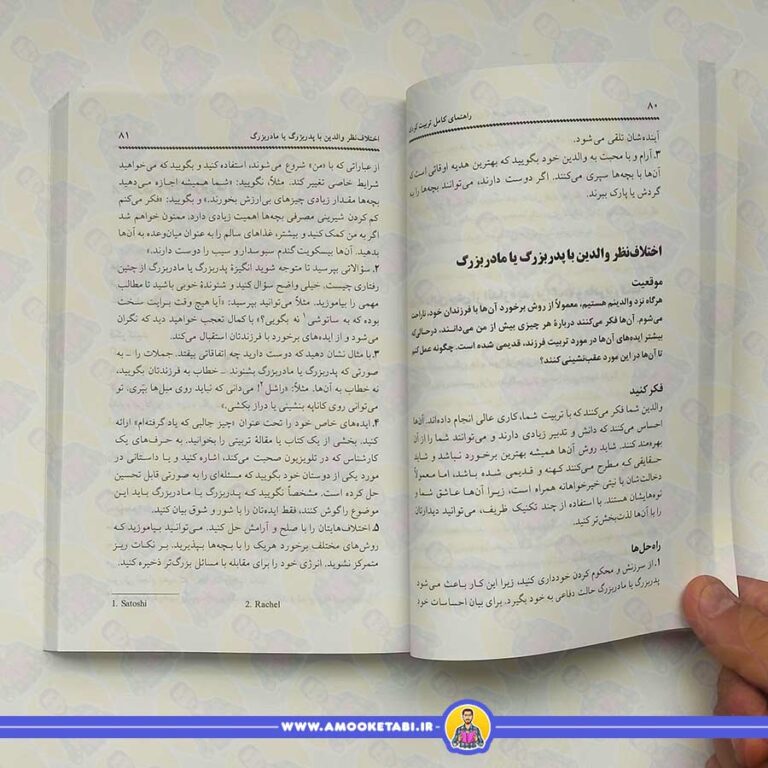 ۸۰
راهنمای کامل تربیت کودک
آینده‌شان تلقی می‌شود.
۳. آرام و با محبت به والدین خود بگویید که بهترین هدیه اوقاتی است که
آن‌ها با بچه‌ها سپری می‌کنند. اگر دوست دارند، می‌توانند بچه‌ها را به
گردش یا پارک ببرند.
اختلاف‌نظر والدین با پدربزرگ یا مادربزرگ
موقعیت
هرگاه نزد والدینم هستیم، معمولاً از روش برخورد آن‌ها با فرزندان خود، ناراحت
می‌شوم. آن‌ها فکر می‌کنند دربارهٔ هر چیزی بیش از من می‌دانند، درحالی‌که
بیشتر ایده‌های آن‌ها در مورد تربیت فرزند، قدیمی شده است. چگونه عمل کنم
تا آن‌ها در این مورد عقب‌نشینی کنند؟
فکر کنید
والدین شما فکر می‌کنند که با تربیت شما، کاری عالی انجام داده‌اند. آن‌ها
احساس می‌کنند که دانش و تدبیر زیادی دارند و می‌توانند شما را از آن
بهره‌مند کنند. شاید روش آن‌ها همیشه بهترین برخورد نباشد و شاید
حقایقی که مطرح می‌کنند کهنه و قدیمی شده باشد، اما معمولاً
دخالت‌شان با نیتی خیرخواهانه همراه است، زیرا آن‌ها عاشق شما و
نوه‌هایشان هستند. با استفاده از چند تکنیک ظریف، می‌توانید دیدارتان
را با آن‌ها لذت‌بخش‌تر کنید.
راه‌حل‌ها
۱. از سرزنش و محکوم کردن خودداری کنید، زیرا این کار باعث می‌شود
پدربزرگ یا مادربزرگ حالت دفاعی به خود بگیرد. برای بیان احساسات خود
اختلاف‌نظر والدین با پدربزرگ یا مادربزرگ
۸۱
از عباراتی که با «من» شروع می‌شوند، استفاده کنید و بگویید که می‌خواهید
شرایط خاصی تغییر کند. مثلاً، نگویید: «شما همیشه اجازه می‌دهید
بچه‌ها مقدار زیادی چیزهای بی‌ارزش بخورند.» و بگویید: «فکر می‌کنم
کم کردن شیرینی مصرفی بچه‌ها اهمیت زیادی دارد، ممنون خواهم شد
اگر به من کمک کنید و بیشتر، غذاهای سالم را به عنوان میان‌وعده به آن‌ها
بدهید. آن‌ها بیسکویت گندم سبوسدار و سیب را دوست دارند.»
۲. سؤالاتی بپرسید تا متوجه شوید انگیزهٔ پدربزرگ یا مادربزرگ از چنین
رفتاری چیست. خیلی واضح سؤال کنید و شنوندهٔ خوبی باشید تا مطالب
مهمی را بیاموزید. مثلاً می‌توانید بپرسید: «آیا هیچ وقت برایت سخت
بوده که به ساتوشی۱ نه بگویی؟» با کمال تعجب خواهید دید که نگران
می‌شود و از ایده‌های برخورد با فرزندتان استقبال می‌کند.
۳. با مثال نشان دهید که دوست دارید چه اتفاقاتی بیفتد. جملات را ـ به
صورتی که پدربزرگ یا مادربزرگ بشنوند ـ خطاب به فرزندتان بگویید،
نه خطاب به آن‌ها. مثلاً: «راشل۲! می‌دانی که نباید روی مبل‌ها بپّری، تو
می‌توانی روی کاناپه بنشینی یا دراز بکشی.»
۴. ایده‌های خاص خود را تحت عنوان «چیز جالبی که یاد گرفته‌ام» ارائه
کنید. بخشی از یک کتاب یا مقالهٔ تربیتی را بخوانید. به حرف‌های یک
کارشناس که در تلویزیون صحبت می‌کند، اشاره کنید و یا داستانی در
مورد یکی از دوستان خود بگویید که مسئله‌ای را به صورتی قابل تحسین
حل کرده است. مشخصاً نگویید که پدربزرگ یا مادربزرگ باید این
موضوع را گوش کنند، فقط ایده‌تان را با شور و شوق بیان کنید.
۵. اختلاف‌هایتان را با صلح و آرامش حل کنید. می‌توانید بیاموزید که
روش‌های مختلف برخورد هریک را با بچه‌ها بپذیرید. بر نکات ریز
متمرکز نشوید. انرژی خود را برای مقابله با مسائل بزرگ‌تر ذخیره کنید.
1. Satoshi 2. Rachel
WWW.AMOOKETABI.IR